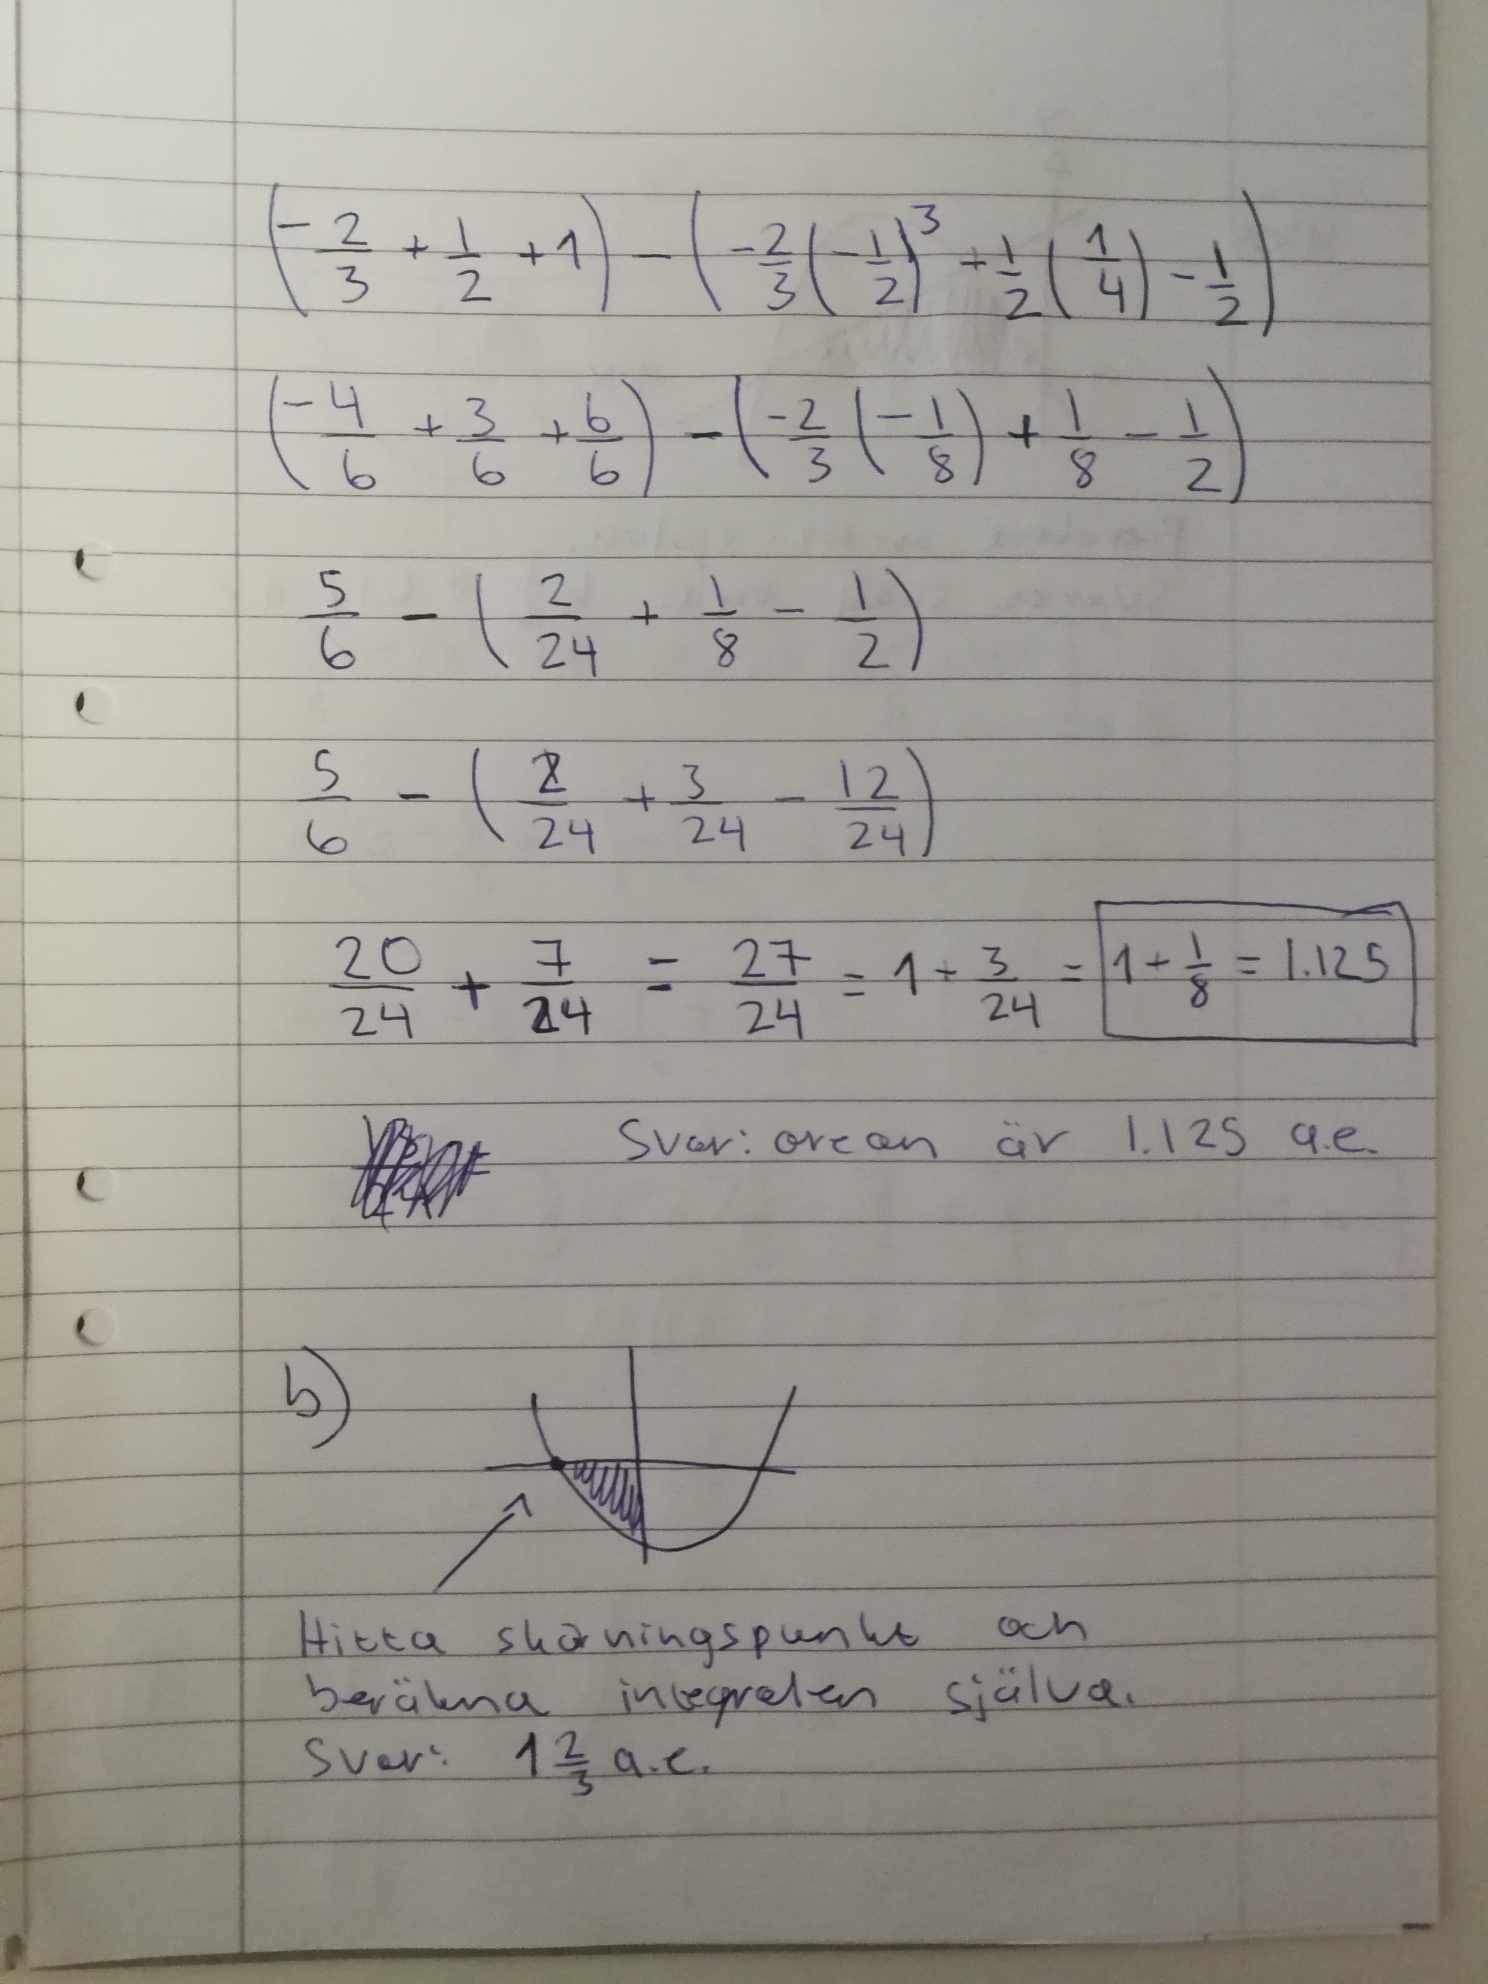 (-2/3 + 1/2 + 1) - (-2/3(-1/2)³ + 1/2(1/4) - 1/2)
(-4/6 + 3/6 + 6/6) - (-2/3(-1/8) + 1/8 - 1/2)
5/6 - (2/24 + 1/8 - 1/2)
5/6 - (2/24 + 3/24 - 12/24)
20/24 + 7/24 = 27/24 = 1 + 3/24 = 1 + 1/8 = 1.125
Svar: arean är 1.125 a.e.
b)
Hitta skärningspunkt och
beräkna integralen själva.
Svar: 1 2/3 a.e.